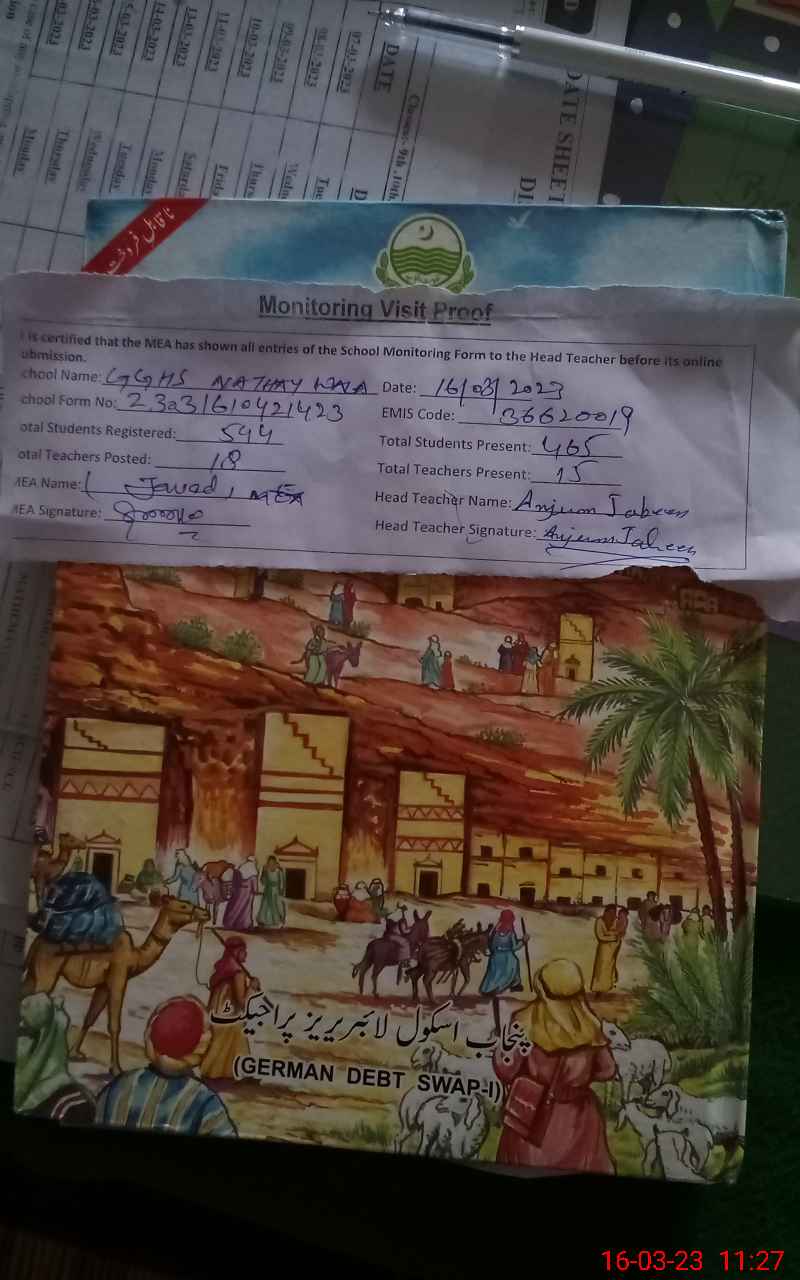 DATE SHEET
Class:- 9th, 10th
DATE
07-03-2023
08-03-2023
09-03-2023
10-03-2023
11-03-2023
13-03-2023
Wedn
Thurs
Frida
Saturd
Monda
Tuesday
Wednesday
Thursday
Monday
ناقابل فروخت
Monitoring Visit Proof
is certified that the MEA has shown all entries of the School Monitoring Form to the Head Teacher before its online
ubmission.
chool Name: GGHS NATHAY WALA Date: 16/03/2023
chool Form No: 23a31610421423 EMIS Code: 36620019
otal Students Registered: 544 Total Students Present: 465
otal Teachers Posted: 18 Total Teachers Present: 15
MEA Name: Javad, MEA Head Teacher Name: Anjum Jabeen
MEA Signature: Head Teacher Signature: Anjum Jabeen
پنجاب اسکول لائبریریز پراجیکٹ
(GERMAN DEBT SWAP-I)
16-03-23 11:27